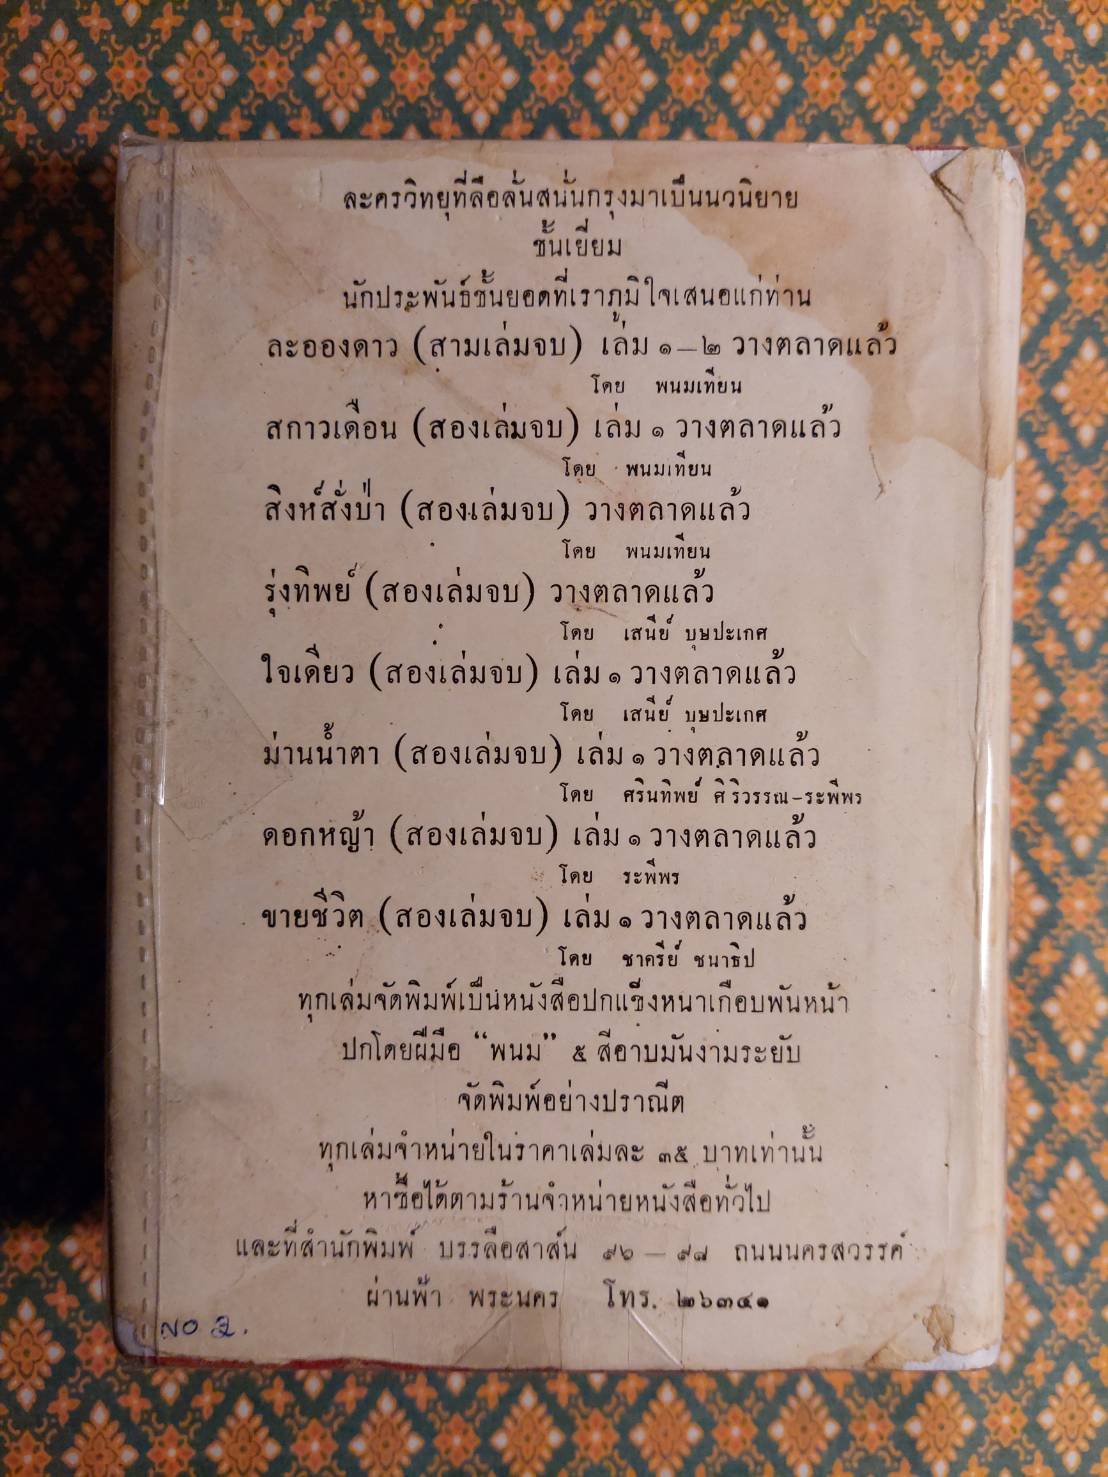 ละครวิทยุที่ลือลั่นสนั่นกรุงมาเป็นนวนิยาย
ชั้นเยี่ยม
นักประพันธ์ชั้นยอดที่เราภูมิใจเสนอแก่ท่าน
ละอองดาว (สามเล่มจบ) เล่ม ๑–๒ วางตลาดแล้ว
โดย พนมเทียน
สกาวเดือน (สองเล่มจบ) เล่ม ๑ วางตลาดแล้ว
โดย พนมเทียน
สิงห์สั่งป่า (สองเล่มจบ) วางตลาดแล้ว
โดย พนมเทียน
รุ่งทิพย์ (สองเล่มจบ) วางตลาดแล้ว
โดย เสนีย์ บุษปะเกศ
ใจเดียว (สองเล่มจบ) เล่ม ๑ วางตลาดแล้ว
โดย เสนีย์ บุษปะเกศ
ม่านน้ำตา (สองเล่มจบ) เล่ม ๑ วางตลาดแล้ว
โดย ศรินทิพย์ ศิริวรรณ–ระพีพร
ดอกหญ้า (สองเล่มจบ) เล่ม ๑ วางตลาดแล้ว
โดย ระพีพร
ขายชีวิต (สองเล่มจบ) เล่ม ๑ วางตลาดแล้ว
โดย ชาครีย์ ชนาธิป
ทุกเล่มจัดพิมพ์เป็นหนังสือปกแข็งหนาเกือบพันหน้า
ปกโดยฝีมือ “พนม” ๕ สีอาบมันงามระยับ
จัดพิมพ์อย่างปราณีต
ทุกเล่มจำหน่ายในราคาเล่มละ ๓๕ บาทเท่านั้น
หาซื้อได้ตามร้านจำหน่ายหนังสือทั่วไป
และที่สำนักพิมพ์ บรรลือสาส์น ๙๖ – ๙๘ ถนนนครสวรรค์
ผ่านฟ้า พระนคร โทร. ๒๖๓๔๑
NO 2.